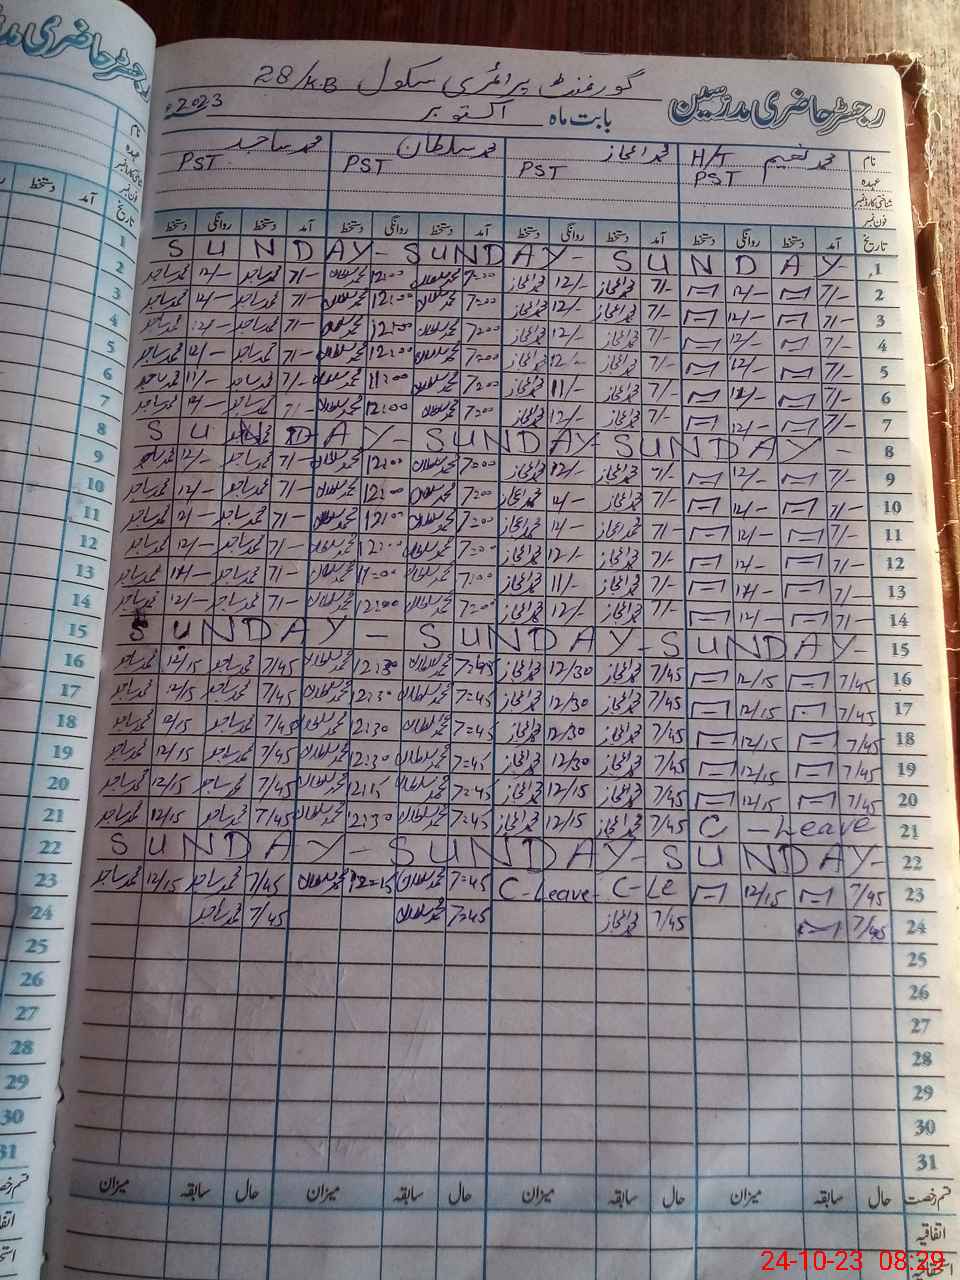 رجسٹر حاضری مدرسین
گورنمنٹ پرائمری سکول 28/KB
بابت ماہ اکتوبر 2023ء
نام محمد نعیم H/T محمد اعجاز محمد سلطان محمد ساجد
عہدہ PST PST PST PST
شناختی کارڈ نمبر
فون نمبر
تاریخ آمد دستخط روانگی دستخط آمد دستخط روانگی دستخط آمد دستخط روانگی دستخط آمد دستخط روانگی دستخط
1 SUNDAY- SUNDAY- SUNDAY-
2 7/- 12/- 7/- محمد اعجاز 12/- محمد اعجاز 7=00 محمد سلطان 12:00 محمد سلطان 7/- محمد ساجد 12/- محمد ساجد
3 7/- 12/- 7/- محمد اعجاز 12/- محمد اعجاز 7=00 محمد سلطان 12:00 محمد سلطان 7/- محمد ساجد 12/- محمد ساجد
4 7/- 12/- 7/- محمد اعجاز 12/- محمد اعجاز 7=00 محمد سلطان 12:00 محمد سلطان 7/- محمد ساجد 12/- محمد ساجد
5 7/- 12/- 7/- محمد اعجاز 12/- محمد اعجاز 7=00 محمد سلطان 12:00 محمد سلطان 7/- محمد ساجد 12/- محمد ساجد
6 7/- 7/- محمد اعجاز 11/- محمد اعجاز 7=00 محمد سلطان 11:00 محمد سلطان 7/- محمد ساجد 11/- محمد ساجد
7 7/- 12/- 7/- محمد اعجاز 12/- محمد اعجاز 7=00 محمد سلطان 12:00 محمد سلطان 7/- محمد ساجد 12/- محمد ساجد
8 SUNDAY- SUNDAY- SUNDAY-
9 7/- 12/- 7/- محمد اعجاز 12/- محمد اعجاز 7=00 محمد سلطان 12:00 محمد سلطان 7/- محمد ساجد 12/- محمد ساجد
10 7/- 12/- 7/- محمد اعجاز 12/- محمد اعجاز 7=00 محمد سلطان 12:00 محمد سلطان 7/- محمد ساجد 12/- محمد ساجد
11 7/- 12/- 7/- محمد اعجاز 12/- محمد اعجاز 7=00 محمد سلطان 12:00 محمد سلطان 7/- محمد ساجد 12/- محمد ساجد
12 7/- 12/- 7/- محمد اعجاز 12/- محمد اعجاز 7=00 محمد سلطان 12:00 محمد سلطان 7/- محمد ساجد 12/- محمد ساجد
13 7/- 7/- محمد اعجاز 11/- محمد اعجاز 7=00 محمد سلطان 11=00 محمد سلطان 7/- محمد ساجد محمد ساجد
14 7/- 12/- 7/- محمد اعجاز 12/- محمد اعجاز 7=00 محمد سلطان 12:00 محمد سلطان 7/- محمد ساجد 12/- محمد ساجد
15 SUNDAY - SUNDAY-SUNDAY-
16 7/45 12/15 7/45 محمد اعجاز 12/30 محمد اعجاز 7=45 محمد سلطان 12:30 محمد سلطان 7/45 محمد ساجد 12/15 محمد ساجد
17 7/45 12/15 7/45 محمد اعجاز 12/30 محمد اعجاز 7=45 محمد سلطان 12:30 محمد سلطان 7/45 محمد ساجد 12/15 محمد ساجد
18 7/45 12/15 7/45 محمد اعجاز 12/30 محمد اعجاز 7=45 محمد سلطان 12:30 محمد سلطان 7/45 محمد ساجد 12/15 محمد ساجد
19 7/45 12/15 7/45 محمد اعجاز 12/30 محمد اعجاز 7=45 محمد سلطان 12:30 محمد سلطان 7/45 محمد ساجد 12/15 محمد ساجد
20 7/45 12/15 7/45 محمد اعجاز 12/15 محمد اعجاز 7=45 محمد سلطان 12:15 محمد سلطان 7/45 محمد ساجد 12/15 محمد ساجد
21 C - Leave 7/45 محمد اعجاز 12/15 محمد اعجاز 7=45 محمد سلطان 12:30 محمد سلطان 7/45 محمد ساجد 12/15 محمد ساجد
22 SUNDAY-SUNDAY-SUNDAY-
23 7/45 12/15 C-Leave- C-Le 7=45 محمد سلطان 12=15 محمد سلطان 7/45 محمد ساجد 12/15 محمد ساجد
24 7/45 7/45 محمد اعجاز 7=45 محمد سلطان 7/45 محمد ساجد
25
26
27
28
29
30
31
قسم رخصت حال سابقہ میزان حال سابقہ میزان حال سابقہ میزان حال سابقہ میزان
اتفاقیہ
استحقاقیہ
24-10-23 08:29